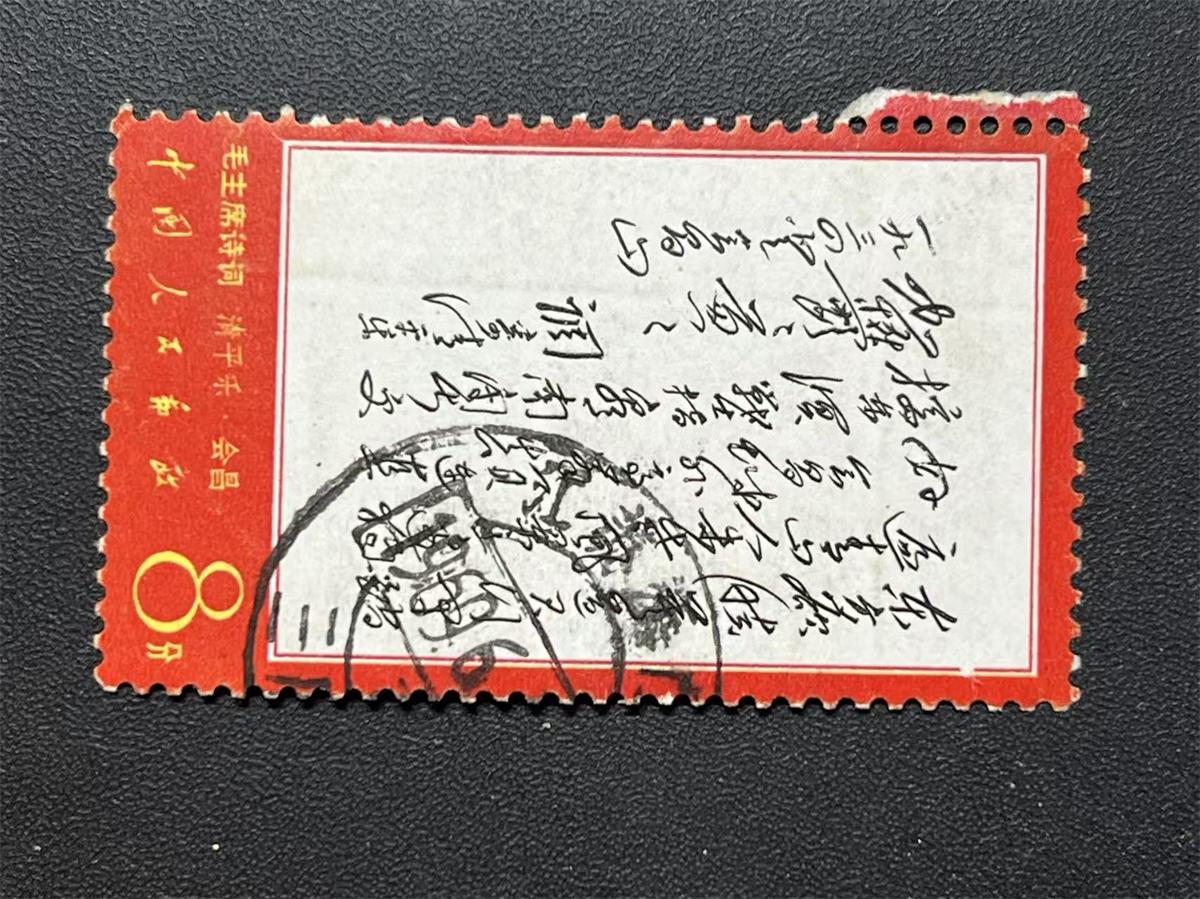 东方欲晓莫道君行早踏
遍青山人未老风景这边独
好会昌城外高峰颠连直
接东溟战士指看南粤更加
郁郁葱葱 调寄清平乐
一九三四年登会昌山
毛主席诗词 清平乐·会昌
中国人民邮政 8分